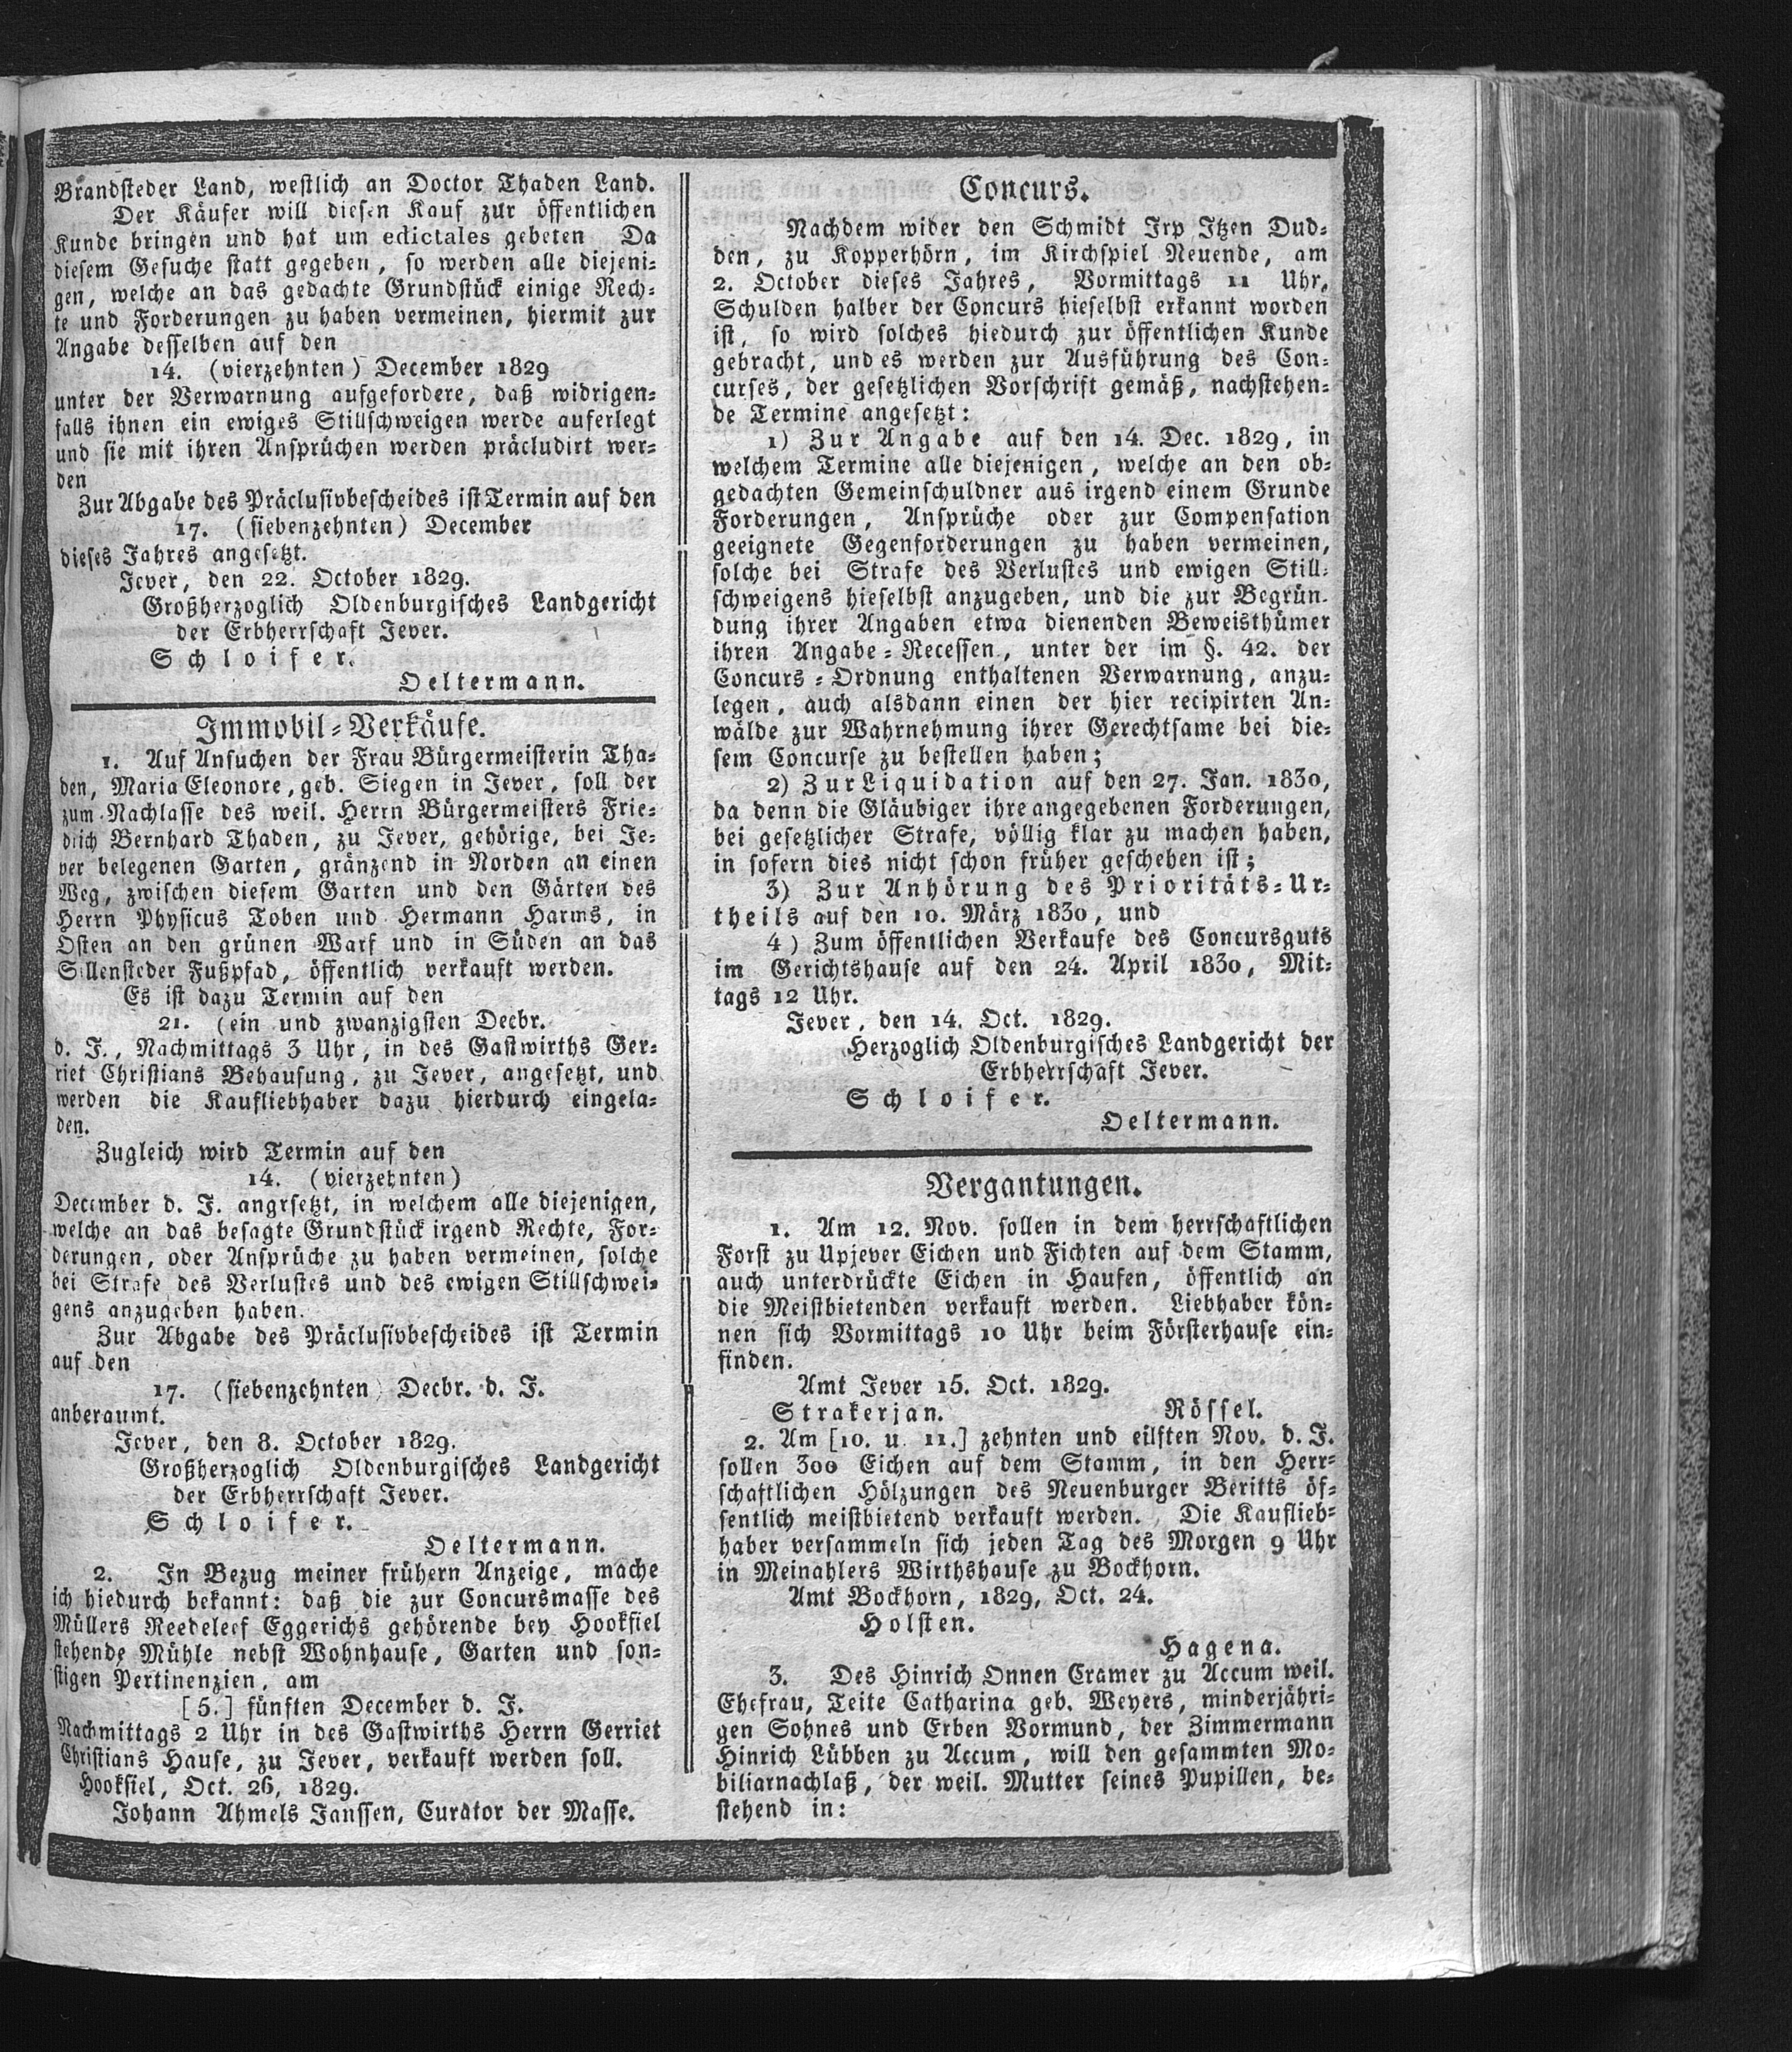 Brandsteder Land, westlich an Doctor Thaden Land.
Der Käufer will diesen Kauf zur öffentlichen
Kunde bringen und hat um edictales gebeten Da
diesem Gesuche statt gegeben, so werden alle diejeni-
gen, welche an das gedachte Grundstück einige Rech-
te und Forderungen zu haben vermeinen, hiermit zur
Angabe desselben auf den
14. (vierzehnten) December 1829
unter der Verwarnung aufgefordere, daß widrigen-
falls ihnen ein ewiges Stillschweigen werde auferlegt
und sie mit ihren Ansprüchen werden präcludirt wer-
den
Zur Abgabe des Präclusivbescheides ist Termin auf den
17. (siebenzehnten) December
dieses Jahres angesetzt.
Jever, den 22. October 1829.
Großherzoglich Oldenburgisches Landgericht
der Erbherrschaft Jever.
Schloifer.
Oeltermann.
Immobil-Verkäufe.
1. Auf Ansuchen der Frau Bürgermeisterin Tha-
den, Maria Eleonore, geb. Siegen in Jever, soll der
zum Nachlasse des weil. Herrn Bürgermeisters Frie-
drich Bernhard Thaden, zu Jever, gehörige, bei Je-
ver belegenen Garten, gränzend in Norden an einen
Weg, zwischen diesem Garten und den Gärten des
Herrn Physicus Toben und Hermann Harms, in
Osten an den grünen Warf und in Süden an das
Sillensteder Fußpfad, öffentlich verkauft werden.
Es ist dazu Termin auf den
21. (ein und zwanzigsten Decbr.
d. J., Nachmittags 3 Uhr, in des Gastwirths Ger-
riet Christians Behausung, zu Jever, angesetzt, und
werden die Kaufliebhaber dazu hierdurch eingela-
den.
Zugleich wird Termin auf den
14. (vierzehnten)
December d. J. angrsetzt, in welchem alle diejenigen,
welche an das besagte Grundstück irgend Rechte, For-
derungen, oder Ansprüche zu haben vermeinen, solche
bei Strafe des Verlustes und des ewigen Stillschwei-
gens anzugeben haben.
Zur Abgabe des Präclusivbescheides ist Termin
auf den
17. (siebenzehnten) Decbr. d. J.
anberaumt.
Jever, den 8. October 1829.
Großherzoglich Oldenburgisches Landgericht
der Erbherrschaft Jever.
Schloifer.
Oeltermann.
2. In Bezug meiner frühern Anzeige, mache
ich hiedurch bekannt: daß die zur Concursmasse des
Müllers Reedeleef Eggerichs gehörende bey Hooksiel
stehende Mühle nebst Wohnhause, Garten und son-
stigen Pertinenzien, am
[5.] fünften December d. J.
Nachmittags 2 Uhr in des Gastwirths Herrn Gerriet
Christians Hause, zu Jever, verkauft werden soll.
Hooksiel, Oct. 26, 1829.
Johann Ahmels Janssen, Curator der Masse.
Concurs.
Nachdem wider den Schmidt Irp Itzen Dud-
den, zu Kopperhörn, im Kirchspiel Neuende, am
2. October dieses Jahres, Vormittags 11 Uhr,
Schulden halber der Concurs hieselbst erkannt worden
ist, so wird solches hiedurch zur öffentlichen Kunde
gebracht, und es werden zur Ausführung des Con-
curses, der gesetzlichen Vorschrift gemäß, nachstehen-
de Termine angesetzt:
1) Zur Angabe auf den 14. Dec. 1829, in
welchem Termine alle diejenigen, welche an den ob-
gedachten Gemeinschuldner aus irgend einem Grunde
Forderungen, Ansprüche oder zur Compensation
geeignete Gegenforderungen zu haben vermeinen,
solche bei Strafe des Verlustes und ewigen Still-
schweigens hieselbst anzugeben, und die zur Begrün-
dung ihrer Angaben etwa dienenden Beweisthümer
ihren Angabe-Recessen, unter der im §. 42. der
Concurs-Ordnung enthaltenen Verwarnung, anzu-
legen, auch alsdann einen der hier recipirten An-
wälde zur Wahrnehmung ihrer Gerechtsame bei die-
sem Concurse zu bestellen haben;
2) Zur Liquidation auf den 27. Jan. 1830,
da denn die Gläubiger ihre angegebenen Forderungen,
bei gesetzlicher Strafe, völlig klar zu machen haben,
in sofern dies nicht schon früher gescheben ist;
3) Zur Anhörung des Prioritäts-Ur-
theils auf den 10. März 1830, und
4) Zum öffentlichen Verkaufe des Concursguts
im Gerichtshause auf den 24. April 1830, Mit-
tags 12 Uhr.
Jever, den 14. Oct. 1829.
Herzoglich Oldenburgisches Landgericht der
Erbherrschaft Jever.
Schloifer.
Oeltermann.
Vergantungen.
1. Am 12. Nov. sollen in dem herrschaftlichen
Forst zu Upjever Eichen und Fichten auf dem Stamm,
auch unterdrückte Eichen in Haufen, öffentlich an
die Meistbietenden verkauft werden. Liebhaber kön-
nen sich Vormittags 10 Uhr beim Försterhause ein-
finden.
Amt Jever 15. Oct. 1829.
Strakerjan. Rössel.
2. Am [10. u. 11.] zehnten und eilften Nov. d. J.
sollen 300 Eichen auf dem Stamm, in den Herr-
schaftlichen Hölzungen des Neuenburger Beritts öf-
fentlich meistbietend verkauft werden. Die Kauflieb-
haber versammeln sich jeden Tag des Morgen 9 Uhr
in Meinahlers Wirthshause zu Bockhorn.
Amt Bockhorn, 1829, Oct. 24.
Holsten.
Hagena.
3. Des Hinrich Onnen Cramer zu Accum weil.
Ehefrau, Teite Catharina geb. Weyers, minderjähri-
gen Sohnes und Erben Vormund, der Zimmermann
Hinrich Lübben zu Accum, will den gesammten Mo-
biliarnachlaß, der weil. Mutter seines Pupillen, be-
stehend in: